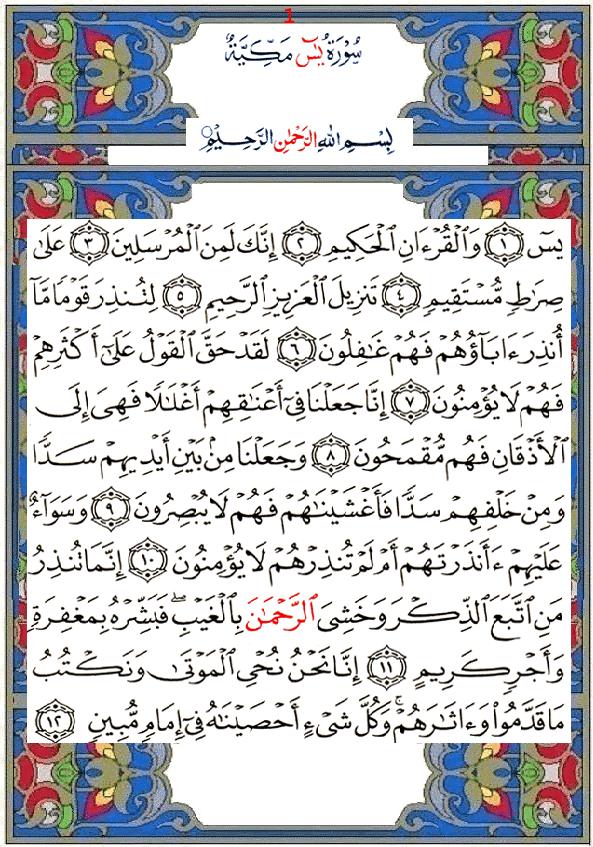 1
سُورَةُ يسٓ مَكِّيَّةٌ
بِسْمِ اللهِ الرَّحْمٰنِ الرَّحِيْمِ
يسٓ ١ وَالْقُرْءَانِ الْحَكِيمِ ٢ إِنَّكَ لَمِنَ الْمُرْسَلِينَ ٣ عَلَىٰ
صِرَٰطٍ مُّسْتَقِيمٍ ٤ تَنزِيلَ الْعَزِيزِ الرَّحِيمِ ٥ لِتُنذِرَ قَوْمًا مَّآ
أُنذِرَ ءَابَآؤُهُمْ فَهُمْ غَٰفِلُونَ ٦ لَقَدْ حَقَّ الْقَوْلُ عَلَىٰٓ أَكْثَرِهِمْ
فَهُمْ لَا يُؤْمِنُونَ ٧ إِنَّا جَعَلْنَا فِىٓ أَعْنَٰقِهِمْ أَغْلَٰلًا فَهِىَ إِلَى
الْأَذْقَانِ فَهُم مُّقْمَحُونَ ٨ وَجَعَلْنَا مِنۢ بَيْنِ أَيْدِيهِمْ سَدًّا
وَمِنْ خَلْفِهِمْ سَدًّا فَأَغْشَيْنَٰهُمْ فَهُمْ لَا يُبْصِرُونَ ٩ وَسَوَآءٌ
عَلَيْهِمْ ءَأَنذَرْتَهُمْ أَمْ لَمْ تُنذِرْهُمْ لَا يُؤْمِنُونَ ١٠ إِنَّمَا تُنذِرُ
مَنِ اتَّبَعَ الذِّكْرَ وَخَشِىَ الرَّحْمَٰنَ بِالْغَيْبِ ۖ فَبَشِّرْهُ بِمَغْفِرَةٍ
وَأَجْرٍ كَرِيمٍ ١١ إِنَّا نَحْنُ نُحْىِ الْمَوْتَىٰ وَنَكْتُبُ
مَا قَدَّمُوا۟ وَءَاثَٰرَهُمْ ۚ وَكُلَّ شَىْءٍ أَحْصَيْنَٰهُ فِىٓ إِمَامٍ مُّبِينٍ ١٢